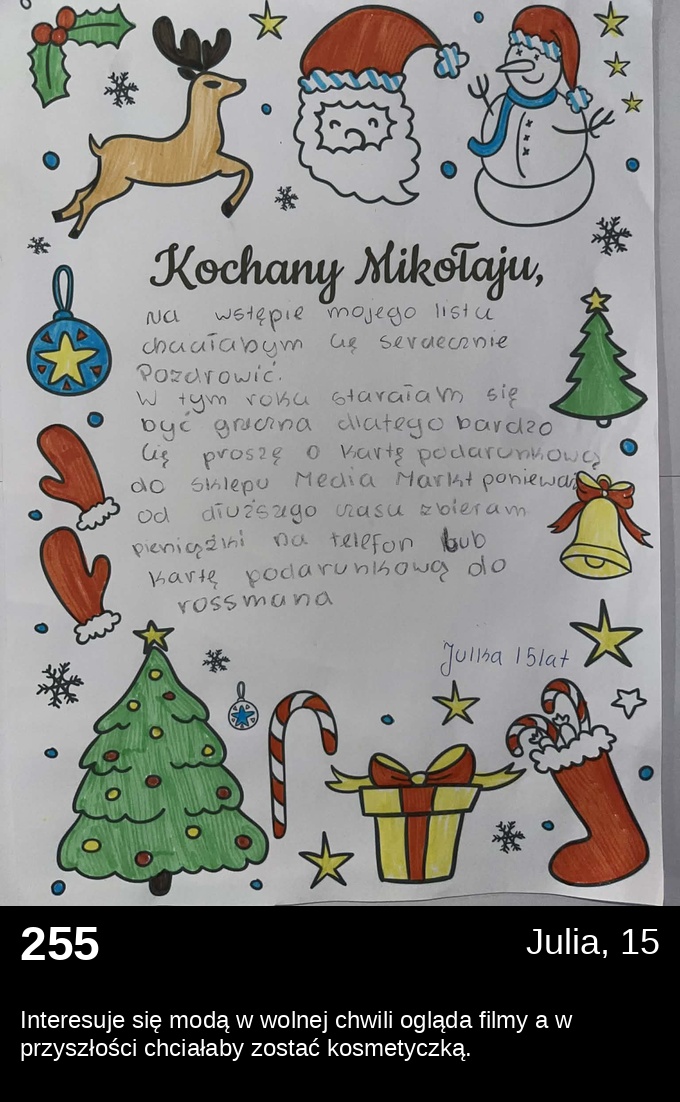 Kochany Mikołaju,
Na wstępie mojego listu
chciałabym Cię serdecznie
Pozdrowić.
W tym roku starałam się
być grzeczna dlatego bardzo
Cię proszę o kartę podarunkową
do sklepu Media Markt ponieważ
od dłuższego czasu zbieram
pieniążki na telefon lub
kartę podarunkową do
rossmana
Julka 15lat
255
Julia, 15
Interesuje się modą w wolnej chwili ogląda filmy a w
przyszłości chciałaby zostać kosmetyczką.